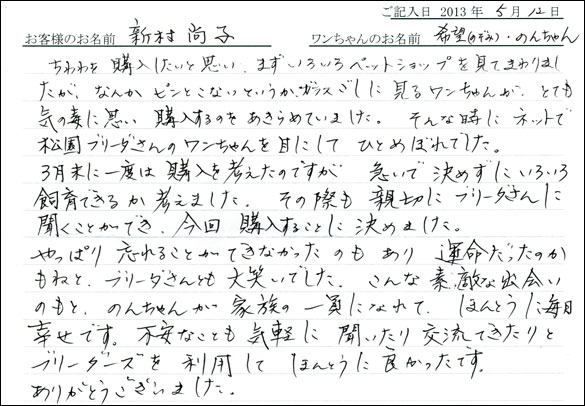 ご記入日 2013年 5月 12日
お客様のお名前 新村 尚子 ワンちゃんのお名前 希望(のぞみ)・のんちゃん
ちわわを購入したいと思い、まずいろいろペットショップを見てまわりまし
たが、なんかピンとこないというか、ガラスごしに見るワンちゃんが、とても
気の毒に思い購入するのをあきらめていました。そんな時にネットで
松園ブリーダさんのワンちゃんを目にしてひとめぼれでした。
3月末に一度は購入を考えたのですが 急いで決めずにいろいろ
飼育できるか考えました。その際も親切にブリーダさんに
聞くことができ、今回購入することに決めました。
やっぱり忘れることができなかったのもあり運命だったのか
もねと、ブリーダさんとも大笑いでした。こんな素敵な出会い
のもと、のんちゃんが家族の一員になれて、ほんとうに毎日
幸せです。不安なことも気軽に聞いたり交流できたりと
ブリーダーズを利用してほんとうに良かったです。
ありがとうございました。